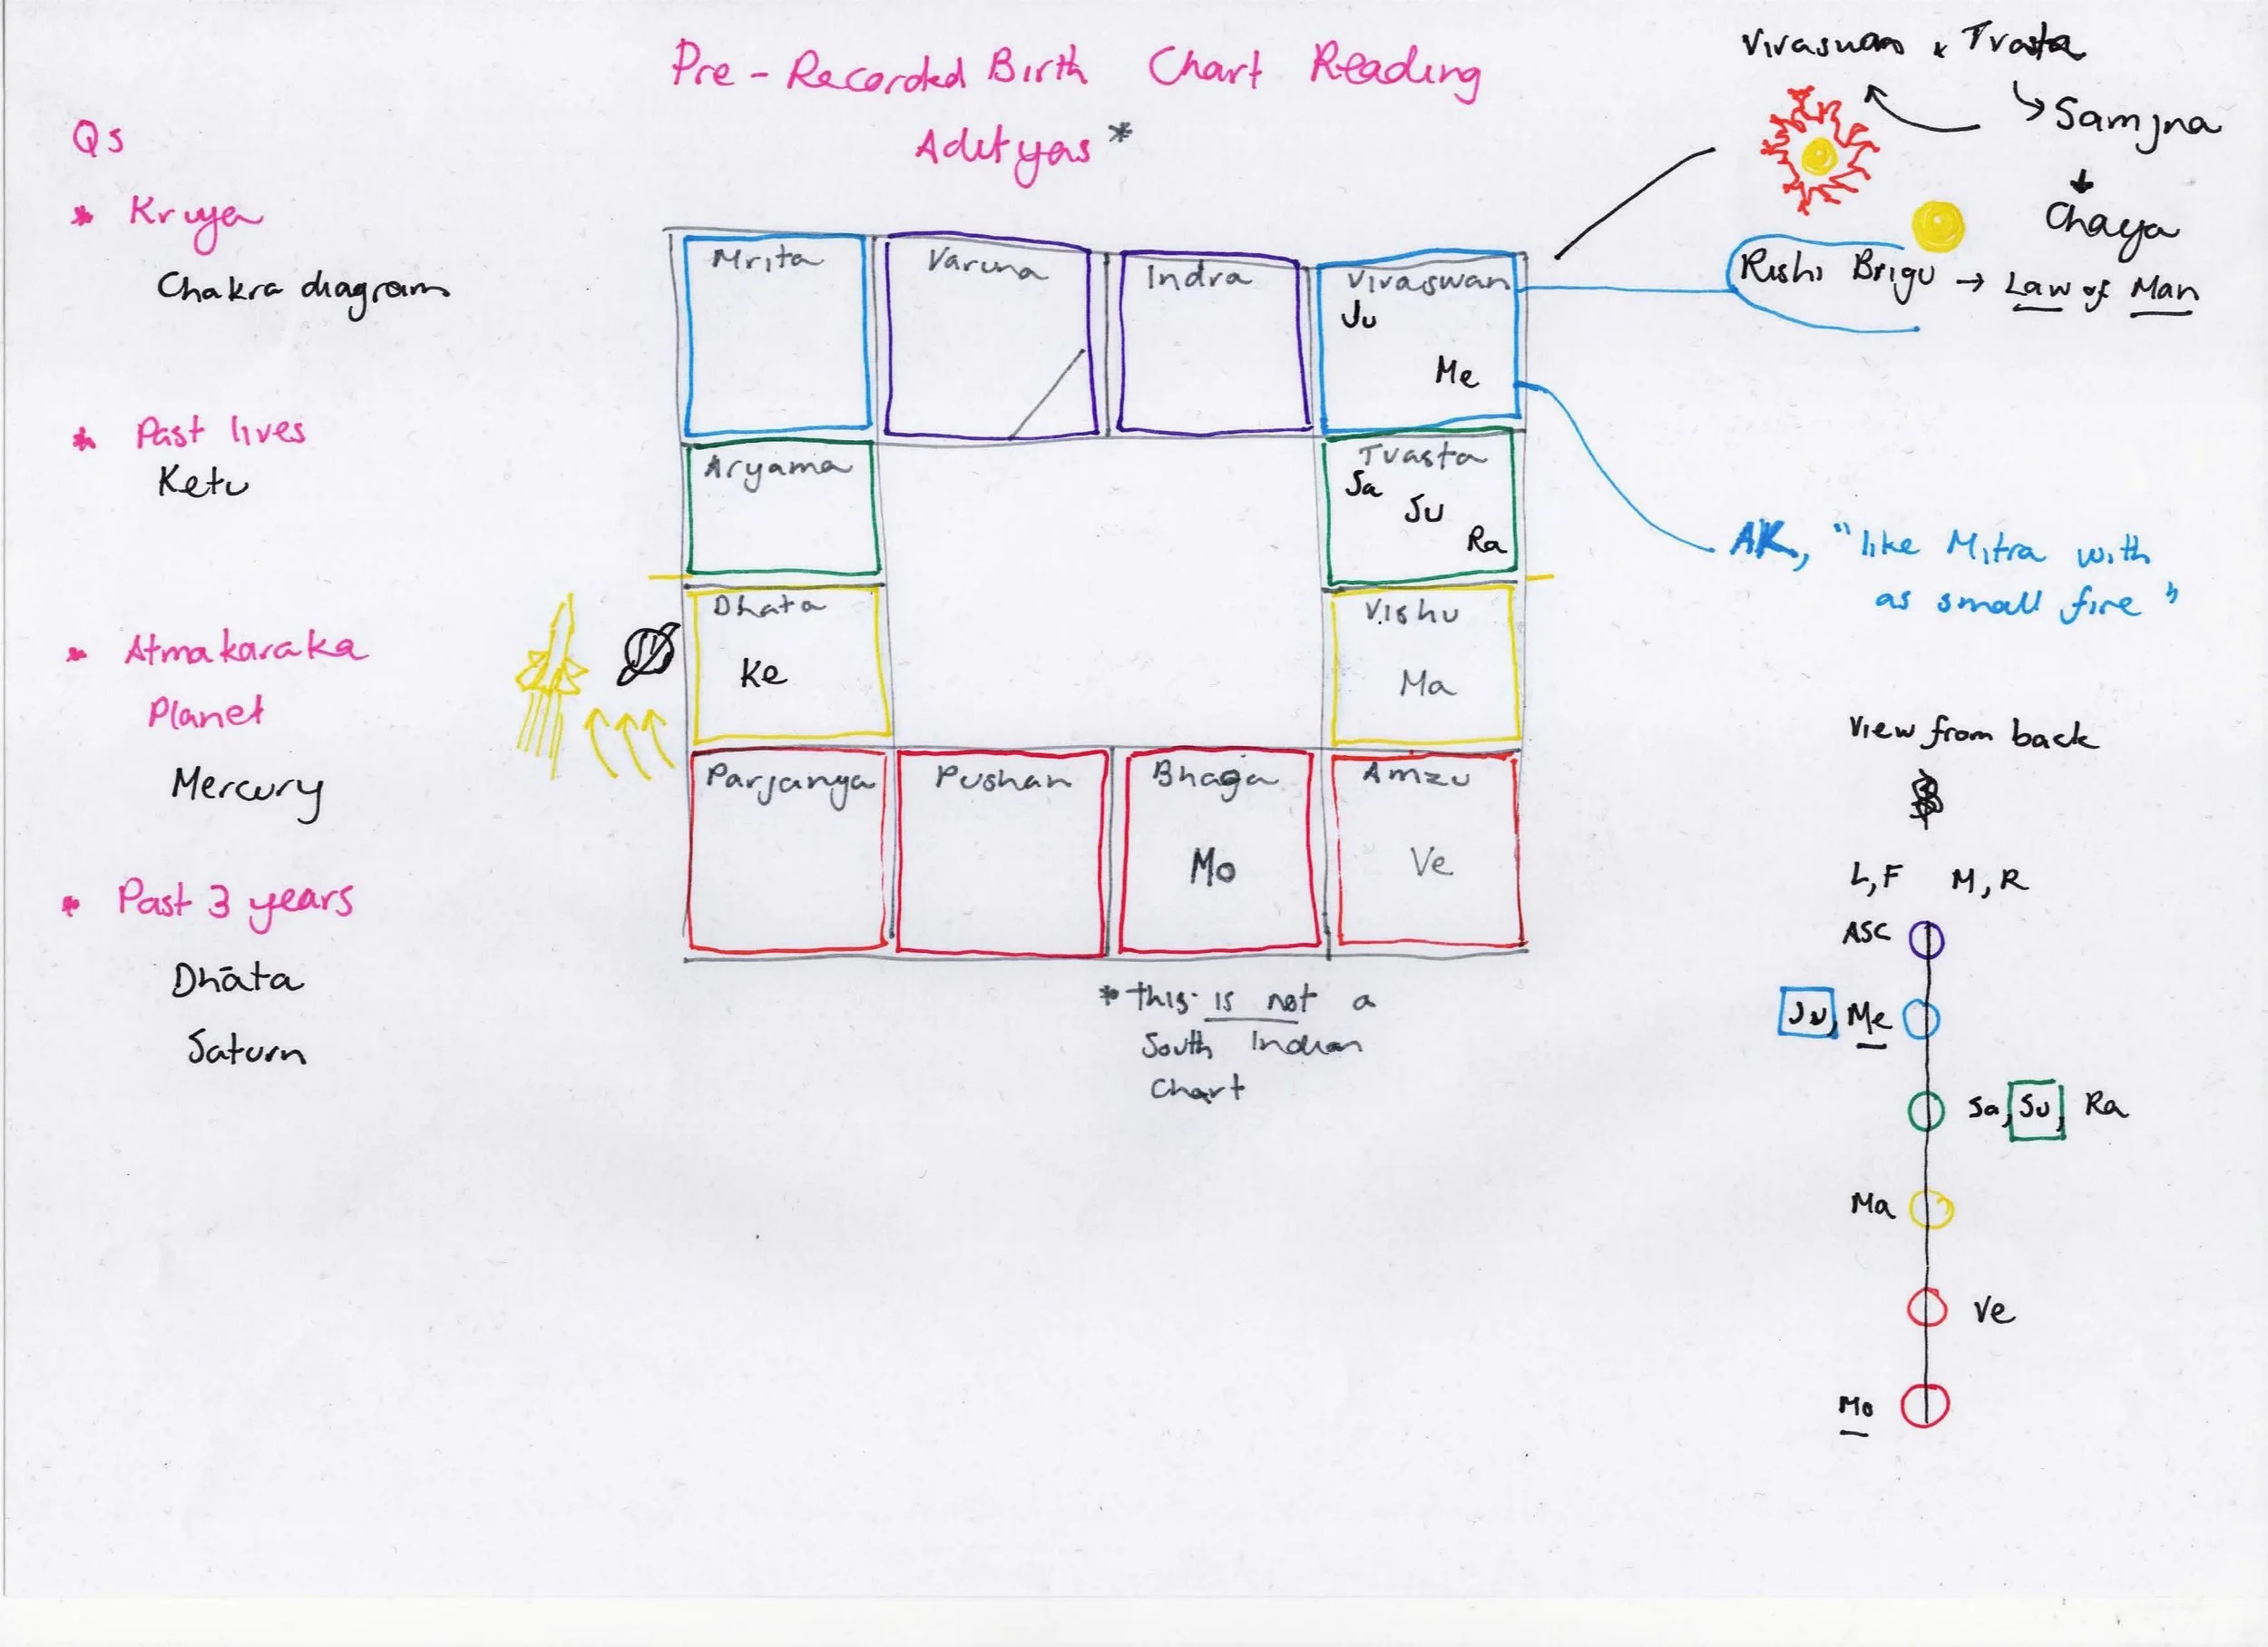 Pre-Recorded Birth Chart Reading
Adityas*
Qs
* Kruya
Chakra diagram
* Past lives
Ketu
* Atmakaraka
Planet
Mercury
* Past 3 years
Dhāta
Saturn
Mrita
Varuna
Indra
Vivaswan
Ju
Me
Aryama
Tvasta
Sa
Su
Ra
Dhata
Ke
Vishu
Ma
Parjanya
Pushan
Bhaga
Mo
Amzu
Ve
* This is not a
South Indian
Chart
Vivaswan & Tvasta
Samjna
Chaya
Rishi Brigu → Law of Man
AK, "like Mitra with
as small fire"
View from back
L,F M,R
ASC
Ju, Me
Sa, Su, Ra
Ma
Ve
Mo